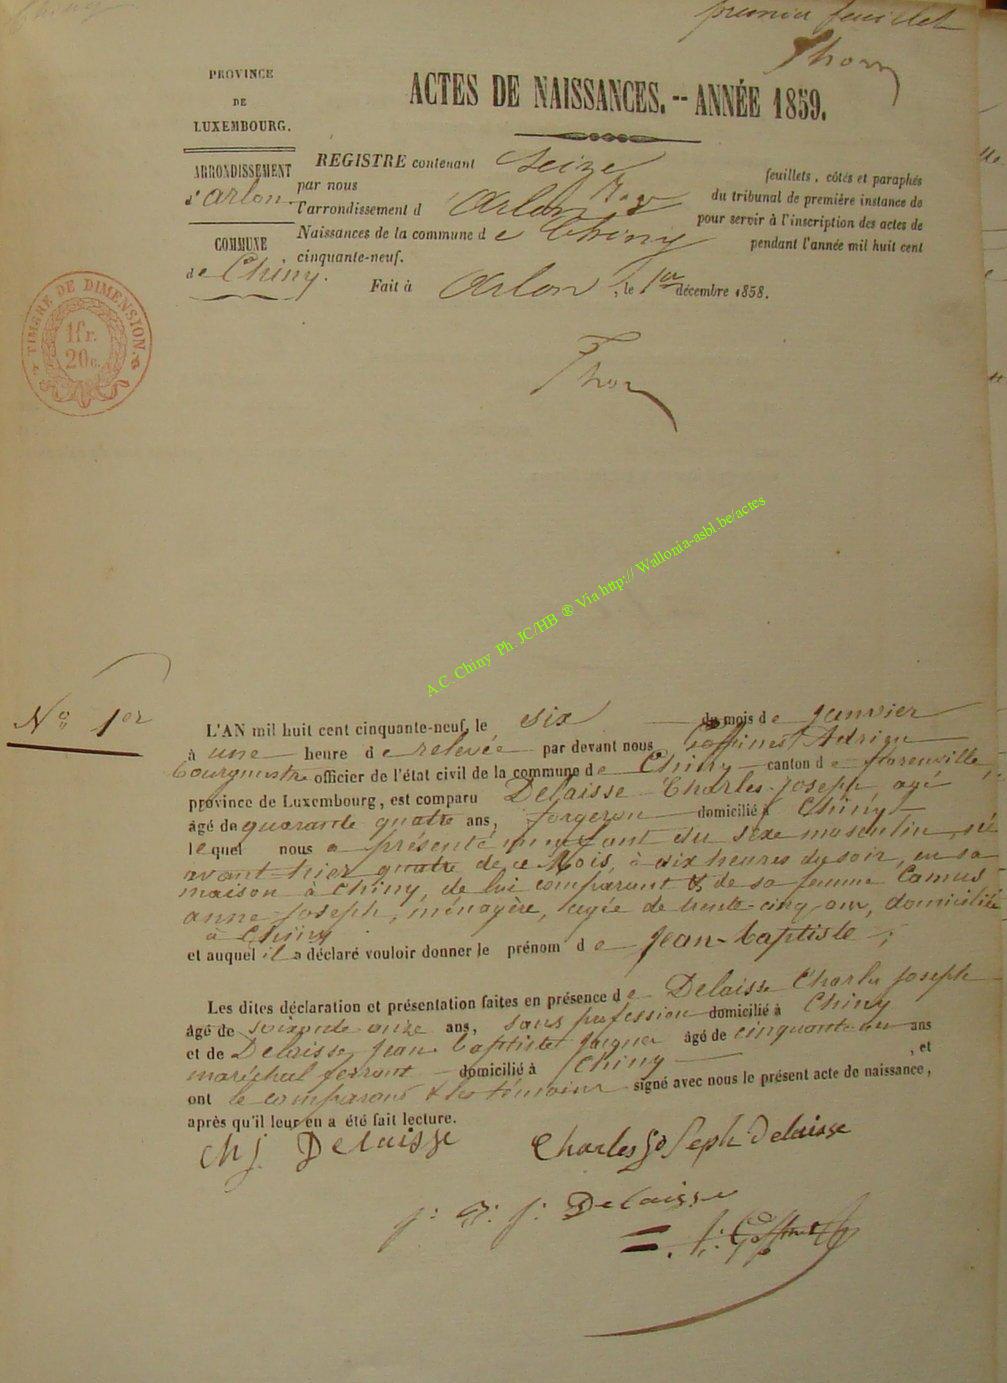 premier feuillet
Thom
PROVINCE
DE
LUXEMBOURG.
ACTES DE NAISSANCES. -- ANNÉE 1859.
ARRONDISSEMENT
d'arlon.
COMMUNE
de Chiny.
REGISTRE contenant Seize feuillets, côtés et paraphés
par nous Juge du tribunal de première instance de
l'arrondissement d Arlon pour servir à l'inscription des actes de
Naissances de la commune d e Chiny pendant l'année mil huit cent
cinquante-neuf.
Fait à Arlon, le 1er décembre 1858.
TIMBRE DE DIMENSION
1fr.
20c.
Thom
A.C. Chiny Ph. JC/HB ® Via http:// Wallonia-asbl.be/actes
No 1er
L'AN mil huit cent cinquante-neuf, le six du mois d e Janvier
à une heure d e relevée par devant nous, Goffinet Adrien
bourgmestre officier de l'état civil de la commune d e Chiny canton d e florenville,
province de Luxembourg, est comparu Delaisse Charles-Joseph, agé
âgé de quarante quatre ans, forgeron domicilié à Chiny
lequel nous a présenté un enfant du sexe masculin, né
avant-hier quatre de ce Mois, à six heures du soir, en sa
maison à Chiny, de lui comparant & de sa femme Camus
anne-Joseph, ménagère, agée de trente-cinq ans, domiciliée
à Chiny
et auquel il a déclaré vouloir donner le prénom d e Jean-Baptiste ;
Les dites déclaration et présentation faites en présence d e Delaisse Charles Joseph
âgé de soixante onze ans, sans profession domicilié à Chiny
et de Delaisse, Jean-Baptiste âgé de cinquante-un ans
maréchal ferrant domicilié à Chiny, et
ont le comparant & les témoins signé avec nous le présent acte de naissance,
après qu'il leur en a été fait lecture.
Ch J. Delaisse
Charles Joseph Delaisse
j. B. j. Delaisse
A. Goffinet